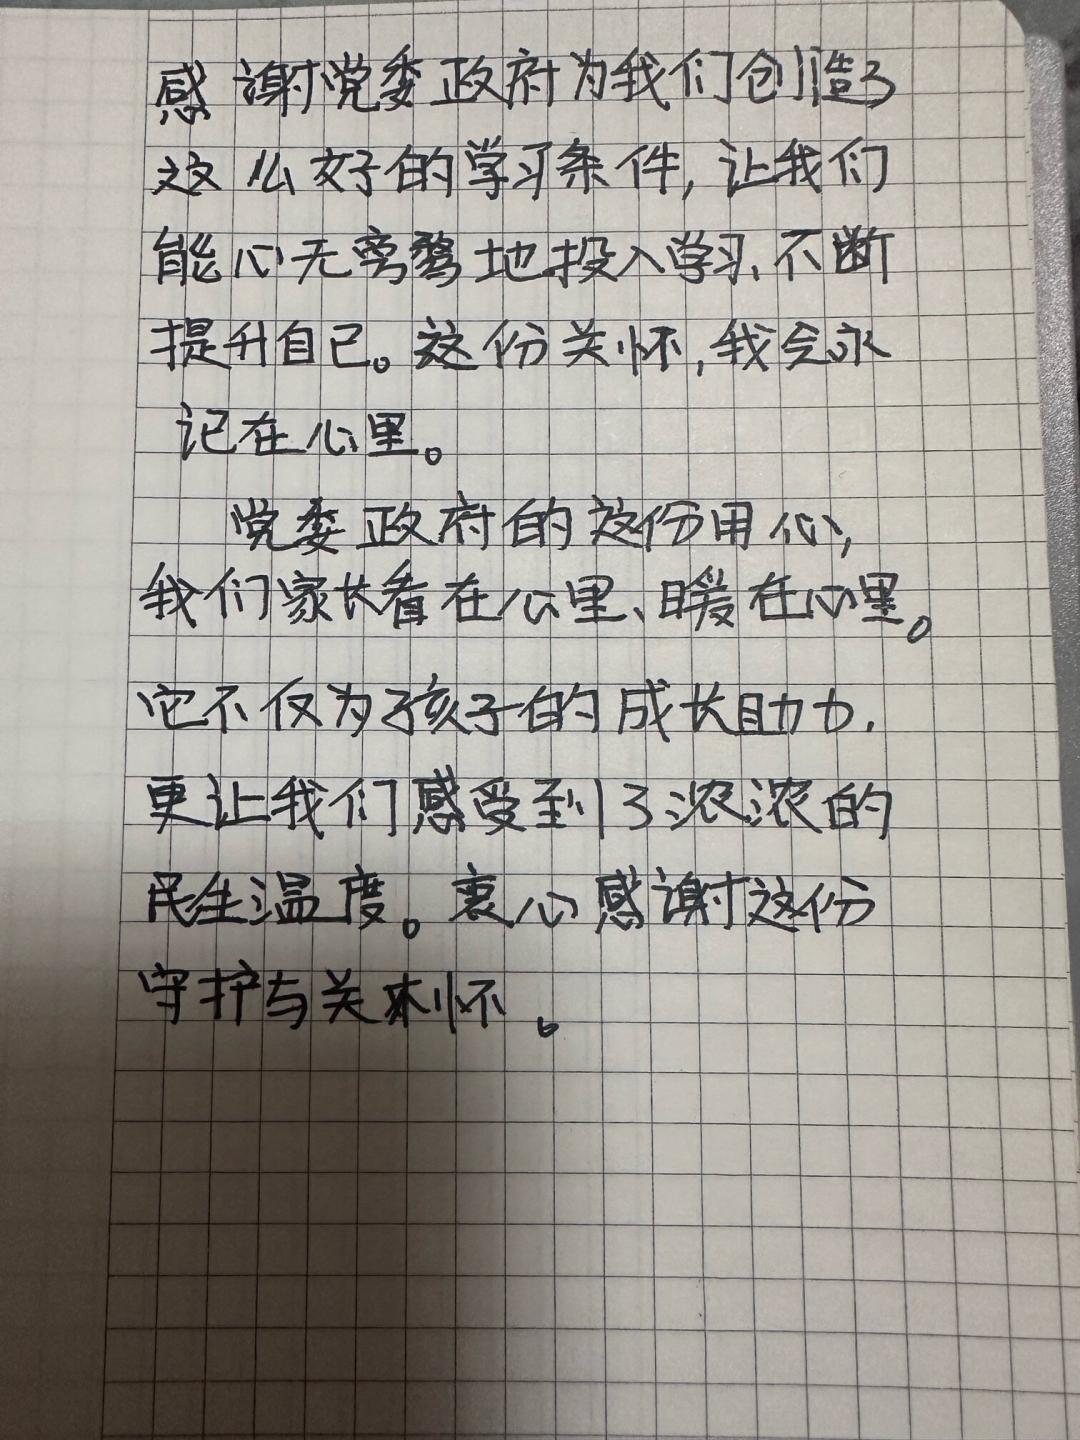 感谢党委政府为我们创造了
这么好的学习条件,让我们
能心无旁骛地投入学习、不断
提升自己。这份关怀,我会永
记在心里。
党委政府的这份用心,
我们家长看在心里、暖在心里。
它不仅为孩子的成长助力,
更让我们感受到了浓浓的
民生温度。衷心感谢这份
守护与关怀。